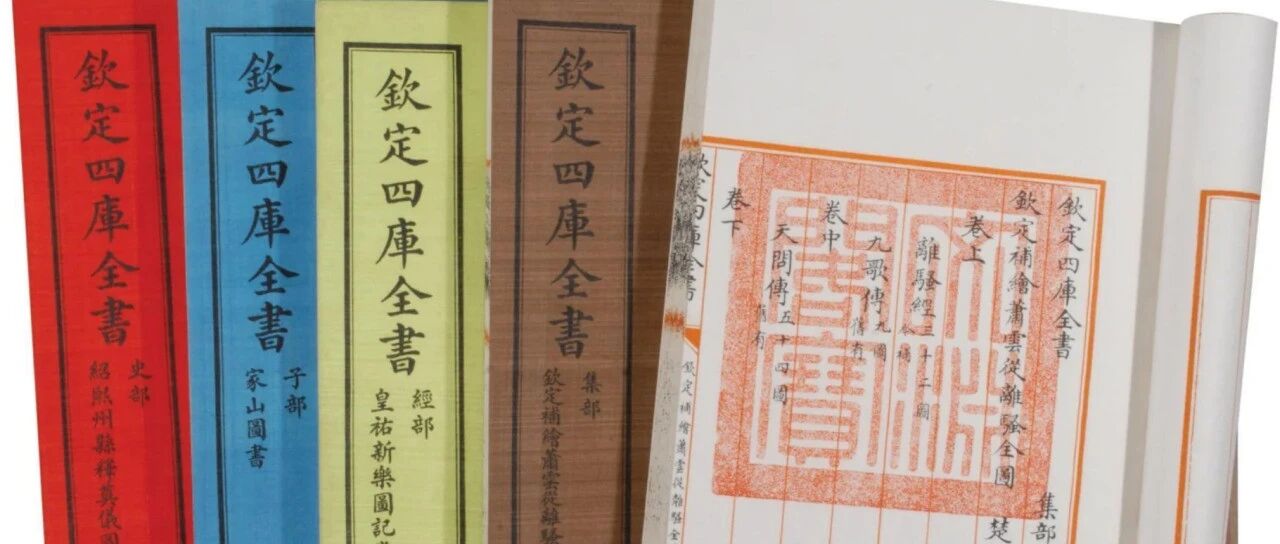 欽定四庫全書
史部
紹熙州縣釋奠儀圖
欽定四庫全書
子部
家山圖書
欽定四庫全書
經部
皇祐新樂圖記
欽定四庫全書
集部
欽定補繪蕭雲從離騷
欽定四庫全書
集部
楚
欽定補繪蕭雲從離騷全圖
卷上
離騷經三十二圖 今補
九歌傳九圖 舊有
卷中
天問傳五十四圖 舊有
卷下
欽定四庫全書
欽定補繪蕭雲從離騷全